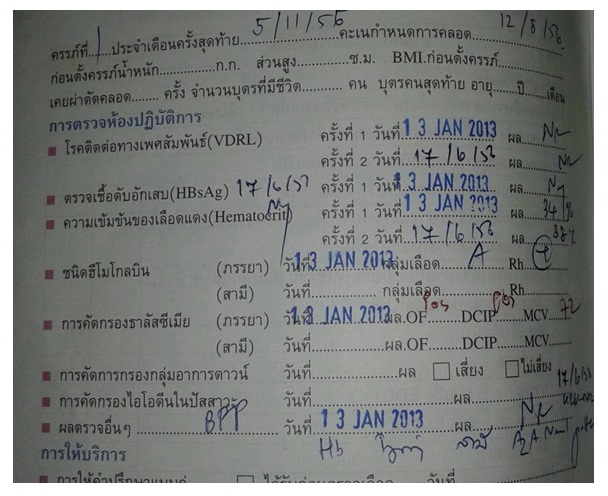 ครรภ์ที่ 1 ประจำเดือนครั้งสุดท้าย 5/11/55 คะเนกำหนดการคลอด 12/8/56
ก่อนตั้งครรภ์น้ำหนัก ก.ก. ส่วนสูง ซ.ม. BMI.ก่อนตั้งครรภ์
เคยผ่าตัดคลอด ครั้ง จำนวนบุตรที่มีชีวิต คน บุตรคนสุดท้าย อายุ ปี เดือน
การตรวจห้องปฏิบัติการ
โรคติดต่อทางเพศสัมพันธ์(VDRL) ครั้งที่ 1 วันที่ 13 JAN 2013 ผล
ครั้งที่ 2 วันที่ 17/6/56 ผล
ตรวจเชื้อตับอักเสบ(HBsAg) 17/6/56 ครั้งที่ 1 วันที่ 13 JAN 2013 ผล
ความเข้มข้นของเลือดแดง(Hematocrit) ครั้งที่ 1 วันที่ 13 JAN 2013 ผล 34 %
ครั้งที่ 2 วันที่ 17/6/56 ผล 38%
ชนิดฮีโมโกลบิน (ภรรยา) วันที่ 13 JAN 2013 กลุ่มเลือด A Rh +
(สามี) วันที่ กลุ่มเลือด Rh
การคัดกรองธาลัสซีเมีย (ภรรยา) วันที่ 13 JAN 2013 ผล.OF Pos DCIP Pos MCV 72
(สามี) วันที่ ผล.OF DCIP MCV
การคัดการกรองกลุ่มอาการดาวน์ วันที่ ผล เสี่ยง ไม่เสี่ยง
การคัดกรองไอโอดีนในปัสสาวะ วันที่ ผล 17/6/56
ผลตรวจอื่นๆ BPP วันที่ 13 JAN 2013 ผล
Hb A2A
การให้บริการ